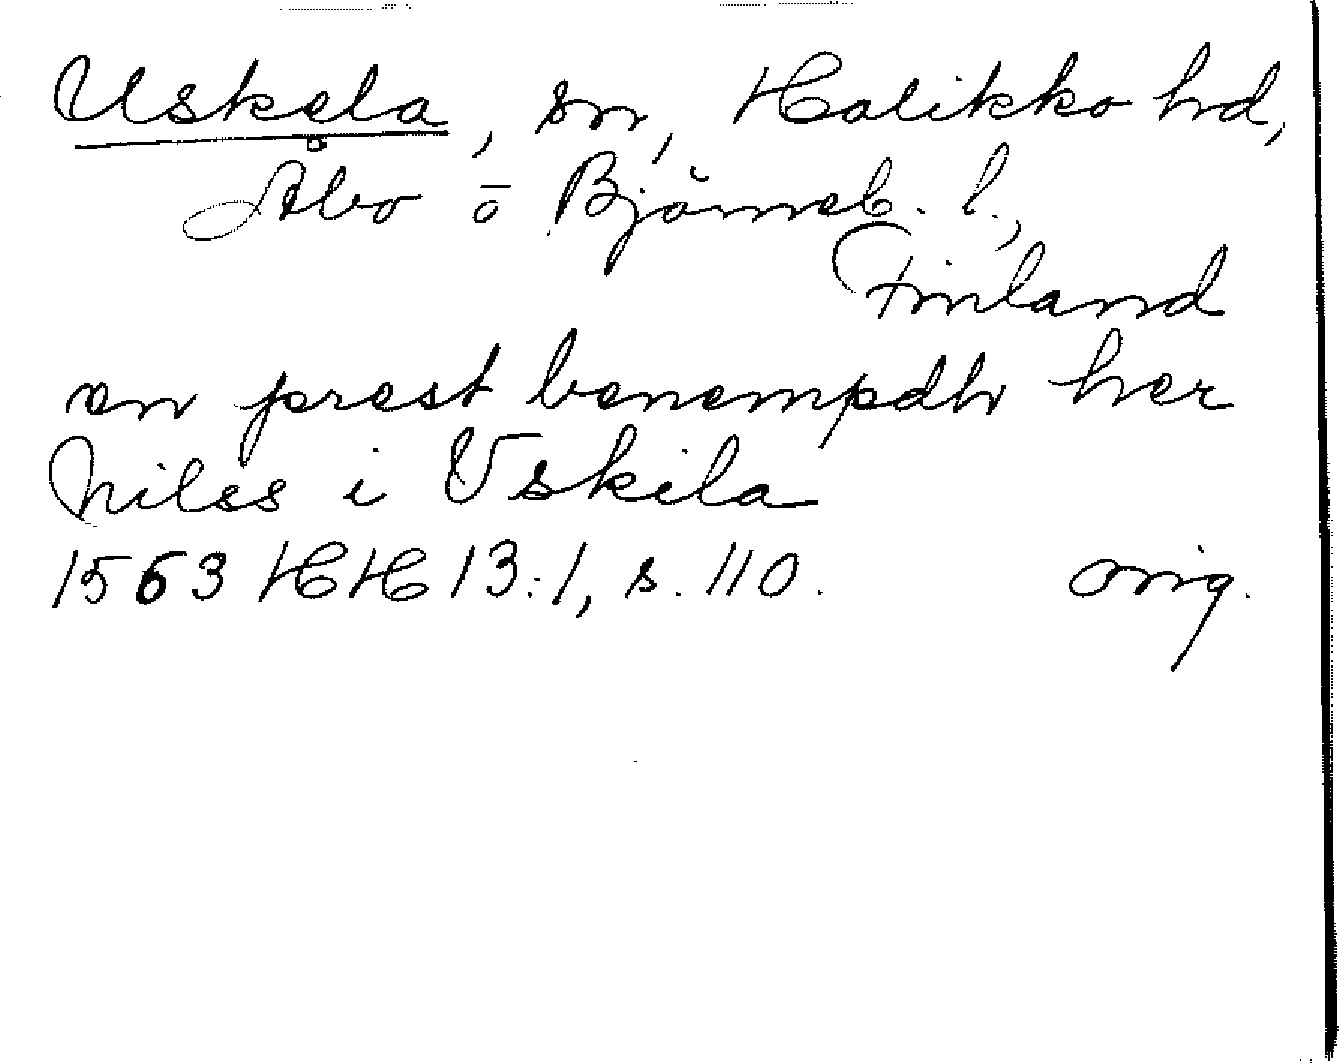 Uskela, sn, Halikko hd,
Åbo ō Björneb. l.,
Finland
en prest benempdh her
Nilss i Vskila
1563 HH 13:1, s. 110. orig.